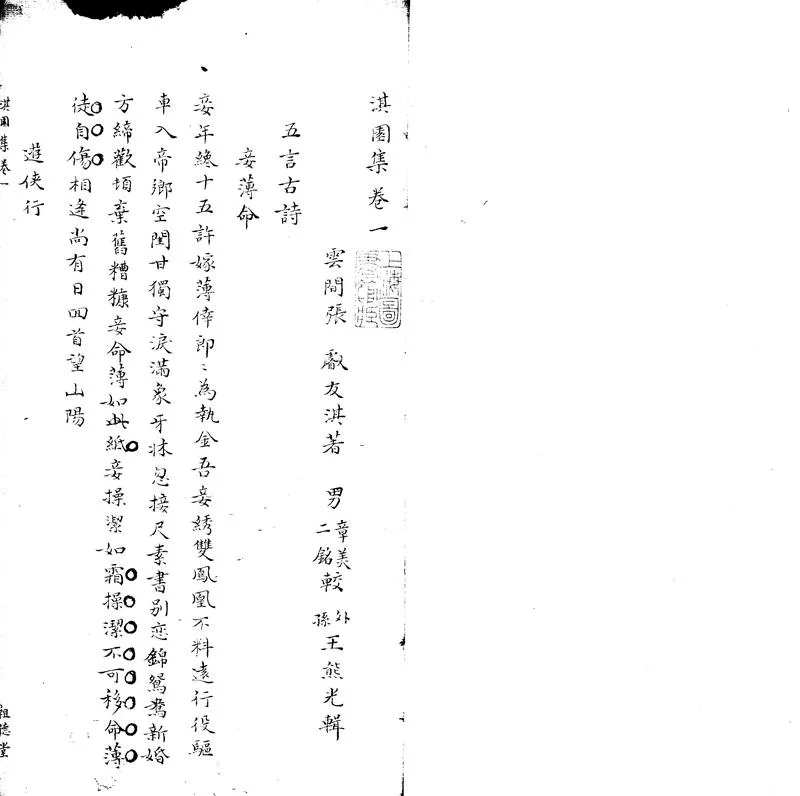 淇園集卷一
雲間張 淇友淇著 男章美二銘較 外孫王熊光輯
五言古詩
妾薄命
妾年纔十五許嫁薄倖郎郎為執金吾妾綉雙鳳凰不料遠行役驅
車入帝鄉空閨甘獨守淚滿象牙牀忽接尺素書別戀錦鴛鴦新婚
方締歡頓棄舊糟糠妾命薄如此紙妾操潔如霜操潔不可移命薄
徒自傷相逢尚有日回首望山陽
遊俠行
淇園集卷一
祖德堂